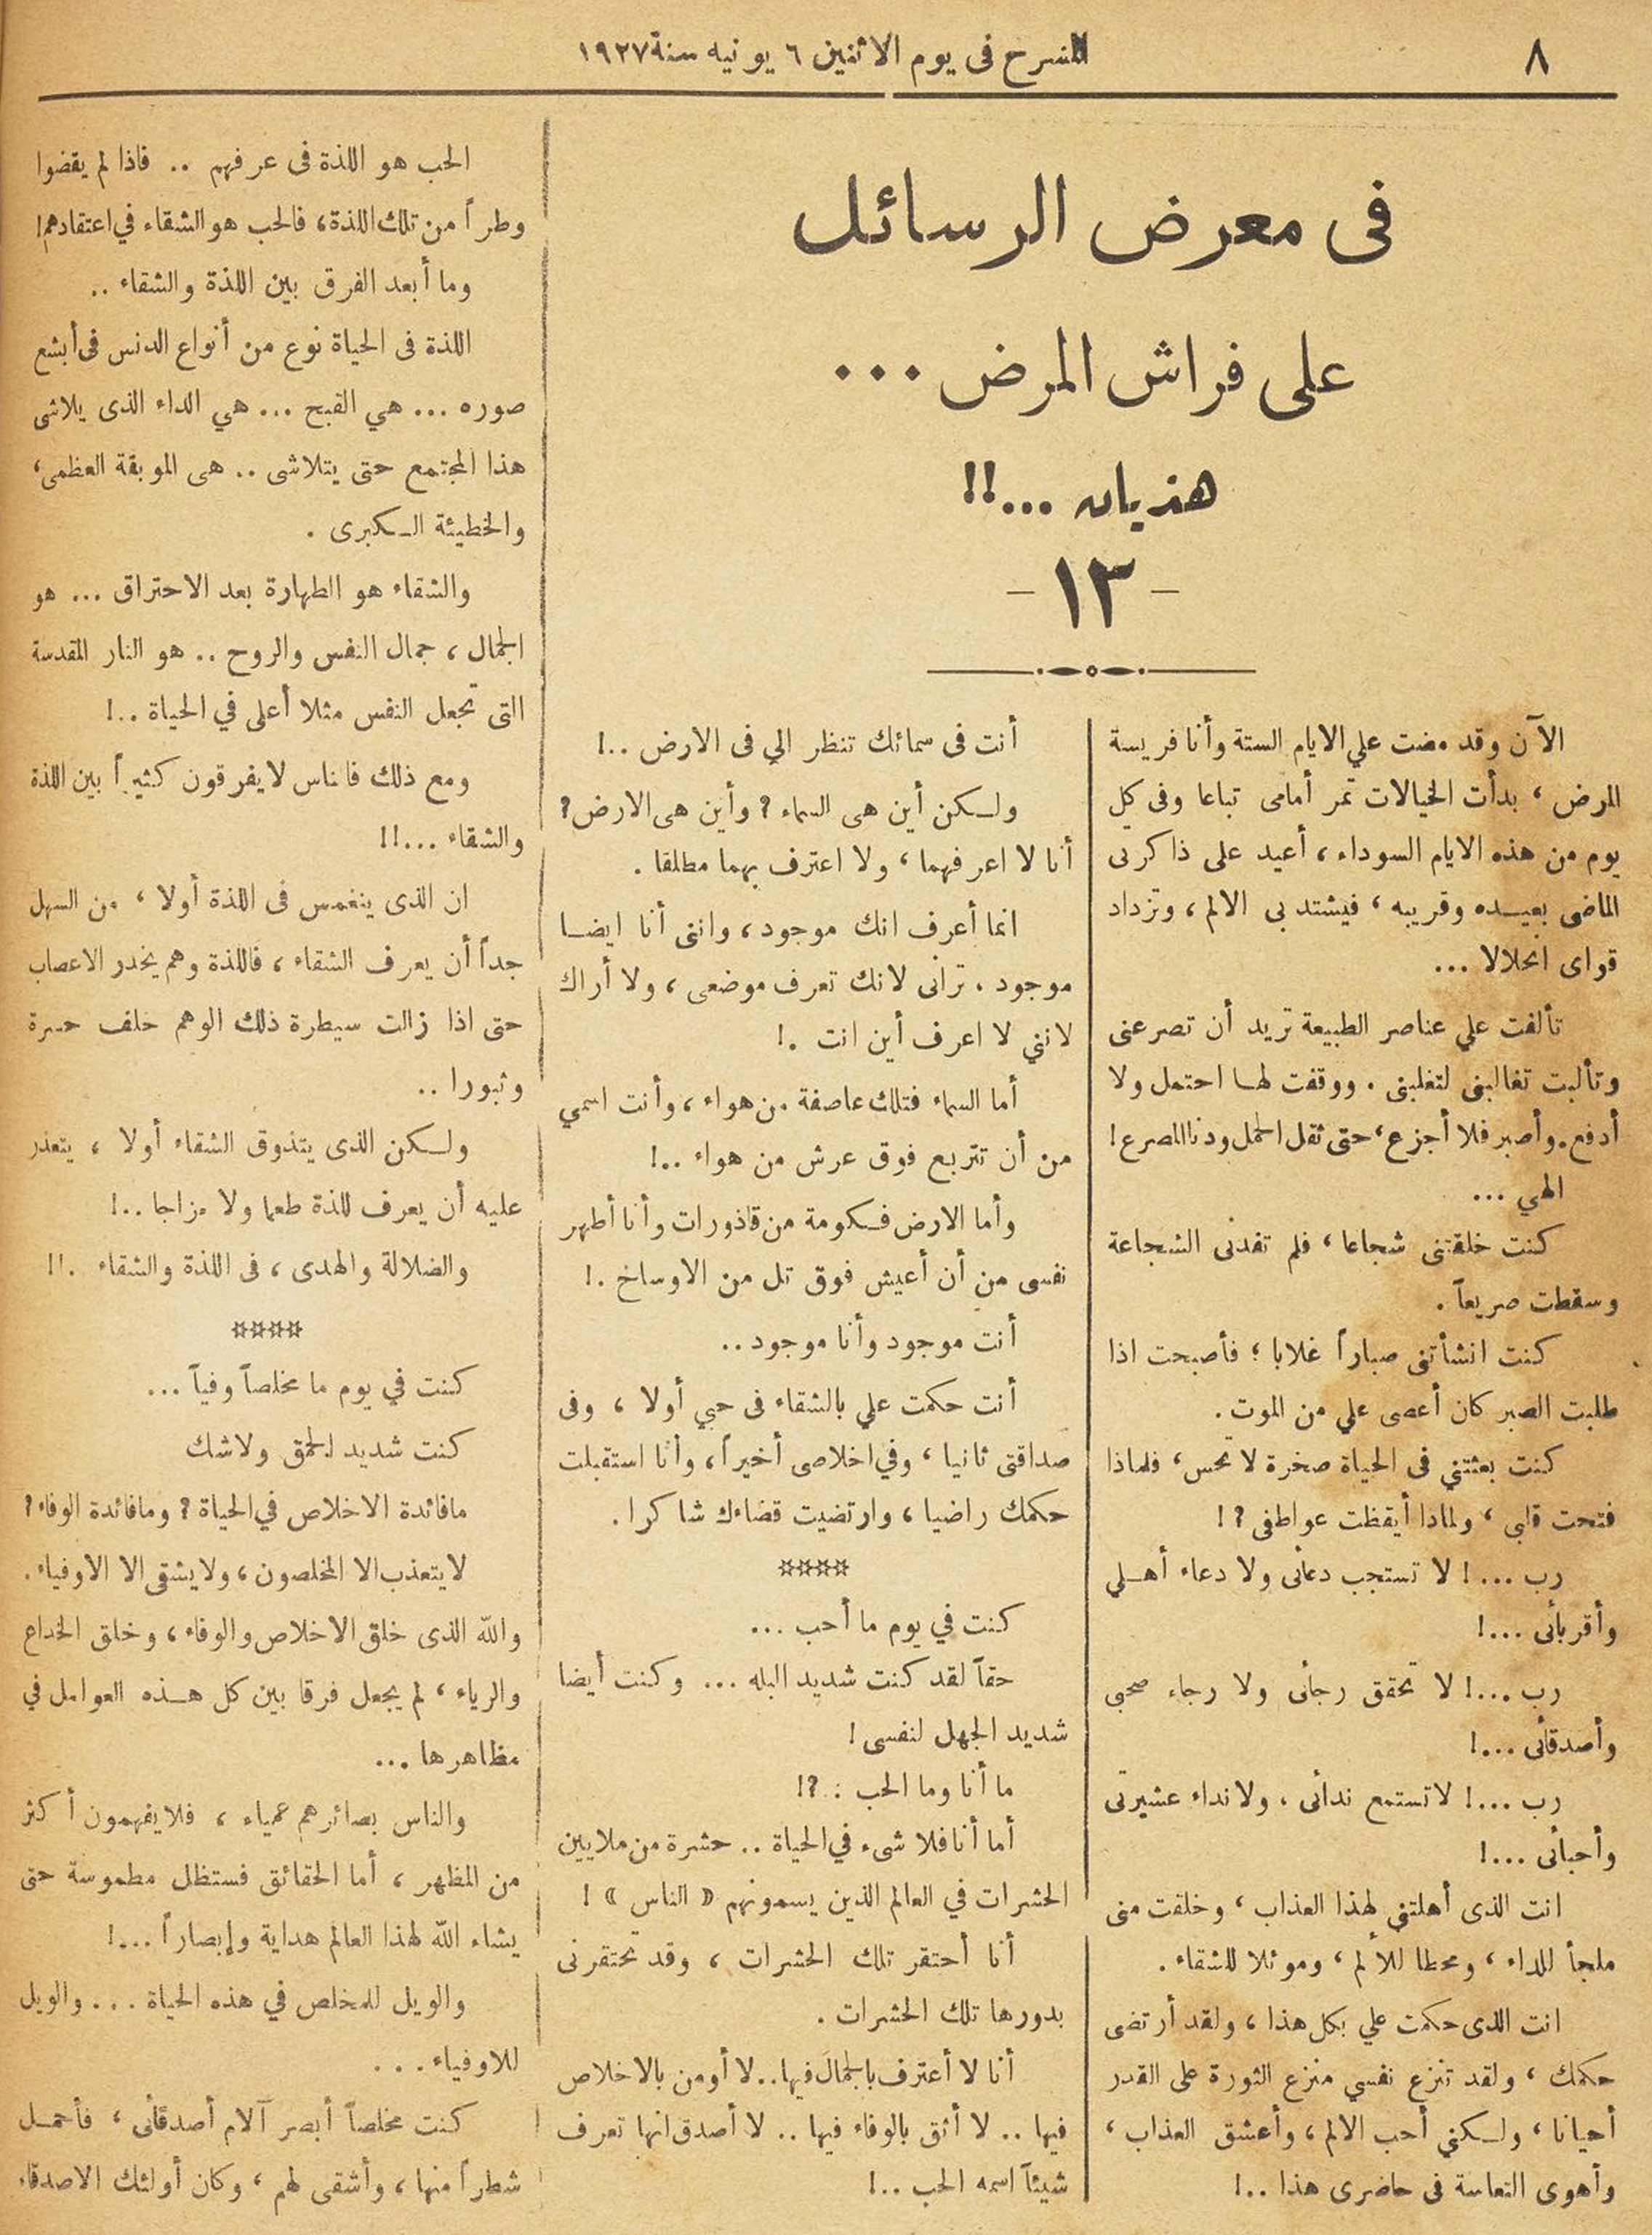 ٨
المسرح فى يوم الاثنين ٦ يونيه سنة ١٩٢٧
فى معرض الرسائل
على فراش المرض ...
هذيان ...!!
- ١٣ -
الآن وقد مضت علي الايام الستة وأنا فريسة
المرض ، بدأت الخيالات تمر أمامى تباعا وفى كل
يوم من هذه الايام السوداء ، أعيد على ذاكرتى
الماضى بعيده وقريبه ، فيشتد بى الالم ، وتزداد
قواى انحلالا ...
تألفت علي عناصر الطبيعة تريد أن تصرعنى
وتألبت تغالبنى لتغلبنى . ووقفت لها احتمل ولا
أدفع . وأصبر فلا أجزع ، حتى ثقل الحمل ودنا المصرع !
الهي ...
كنت خلقتنى شجاعا ، فلم تفدنى الشجاعة
وسقطت صريعاً .
كنت انشأتنى صباراً غلابا ؛ فأصبحت اذا
طلبت الصبر كان أعصى علي من الموت .
كنت بعثتني فى الحياة صخرة لا تحس ، فلماذا
فتحت قلبى ، ولماذا أيقظت عواطفى ؟ !
رب ... ! لا تستجب دعائى ولا دعاء أهلي
وأقربائى ...!
رب ...! لا تحقق رجائى ولا رجاء صحبى
وأصدقائى ...!
رب ...! لا تستمع ندائى ، ولا نداء عشيرتى
وأحبائى ...!
انت الذى أهلتني لهذا العذاب ، وخلقت منى
ملجأ للداء ، ومحطا للألم ، وموئلا للشقاء .
انت الذى حكمت علي بكل هذا ، ولقد أرتضى
حكمك ، ولقد تنزع نفسي منزع الثورة على القدر
أحيانا ، ولكني أحب الالم ، وأعشق العذاب ،
وأهوى التعاسة فى حاضرى هذا ..!
أنت فى سمائك تنظر الي فى الارض ..!
ولكن أين هى السماء ؟ وأين هى الارض ؟
أنا لا اعرفهما ، ولا اعترف بهما مطلقا .
انما أعرف انك موجود ، واننى أنا ايضا
موجود . ترانى لانك تعرف موضعى ، ولا أراك
لانني لا اعرف أين انت .!
أما السماء فتلك عاصفة من هواء ، وأنت اسمي
من أن تتربع فوق عرش من هواء ..!
وأما الارض فكومة من قاذورات وأنا أطهر
نفسى من أن أعيش فوق تل من الاوساخ .!
أنت موجود وأنا موجود ..
أنت حكمت علي بالشقاء فى حبي أولا ، وفى
صداقتى ثانيا ، وفي اخلاصى أخيراً ، وأنا استقبلت
حكمك راضيا ، وارتضيت قضاءك شاكرا .
¤¤¤¤
كنت في يوم ما أحب ...
حقاً لقد كنت شديد البله ... وكنت أيضا
شديد الجهل لنفسى !
ما أنا وما الحب : ؟!
أما أنا فلا شىء في الحياة .. حشرة من ملايين
الحشرات في العالم الذين يسمونهم « الناس » !
أنا أحتقر تلك الحشرات ، وقد تحتقرنى
بدورها تلك الحشرات .
أنا لا أعترف بالجمال فيها .. لا أومن بالاخلاص
فيها .. لا أثق بالوفاء فيها .. لا أصدق انها تعرف
شيئاً اسمه الحب ..!
الحب هو اللذة فى عرفهم .. فاذا لم يقضوا
وطراً من تلك اللذة ، فالحب هو الشقاء في اعتقادهم !
وما أبعد الفرق بين اللذة والشقاء ..
اللذة فى الحياة نوع من أنواع الدنس فى أبشع
صوره ... هي القبح ... هي الداء الذى يلاشى
هذا المجتمع حتى يتلاشى .. هى الموبقة العظمى ،
والخطيئة الكبرى .
والشقاء هو الطهارة بعد الاحتراق ... هو
الجمال ، جمال النفس والروح .. هو النار المقدسة
التى تجعل النفس مثلا أعلى في الحياة ..!
ومع ذلك فالناس لا يفرقون كثيراً بين اللذة
والشقاء ...!!
ان الذى ينغمس فى اللذة أولا ، من السهل
جداً أن يعرف الشقاء ، فاللذة وهم يخدر الاعصاب
حتى اذا زالت سيطرة ذلك الوهم خلف حسرة
وثبورا ..
ولكن الذى يتذوق الشقاء أولا ، يتعذر
عليه أن يعرف للذة طعما ولا مزاجا ..!
والضلالة والهدى ، فى اللذة والشقاء .!!
¤¤¤¤
كنت في يوم ما مخلصاً وفياً ...
كنت شديد الحمق ولا شك
ما فائدة الاخلاص في الحياة ؟ وما فائدة الوفاء ؟
لا يتعذب الا المخلصون ، ولا يشقى الا الاوفياء .
والله الذى خلق الاخلاص والوفاء ، وخلق الخداع
والرياء ، لم يجعل فرقا بين كل هذه العوامل في
مظاهرها ...
والناس بصائرهم عمياء ، فلا يفهمون أكثر
من المظهر ، أما الحقائق فستظل مطموسة حتى
يشاء الله لهذا العالم هداية وإبصاراً ...!
والويل للمخلص في هذه الحياة ... والويل
للاوفياء ...
كنت مخلصاً أبصر آلام أصدقائى ، فأحمل
شطراً منها ، وأشقى لهم ، وكان أولئك الاصدقاء